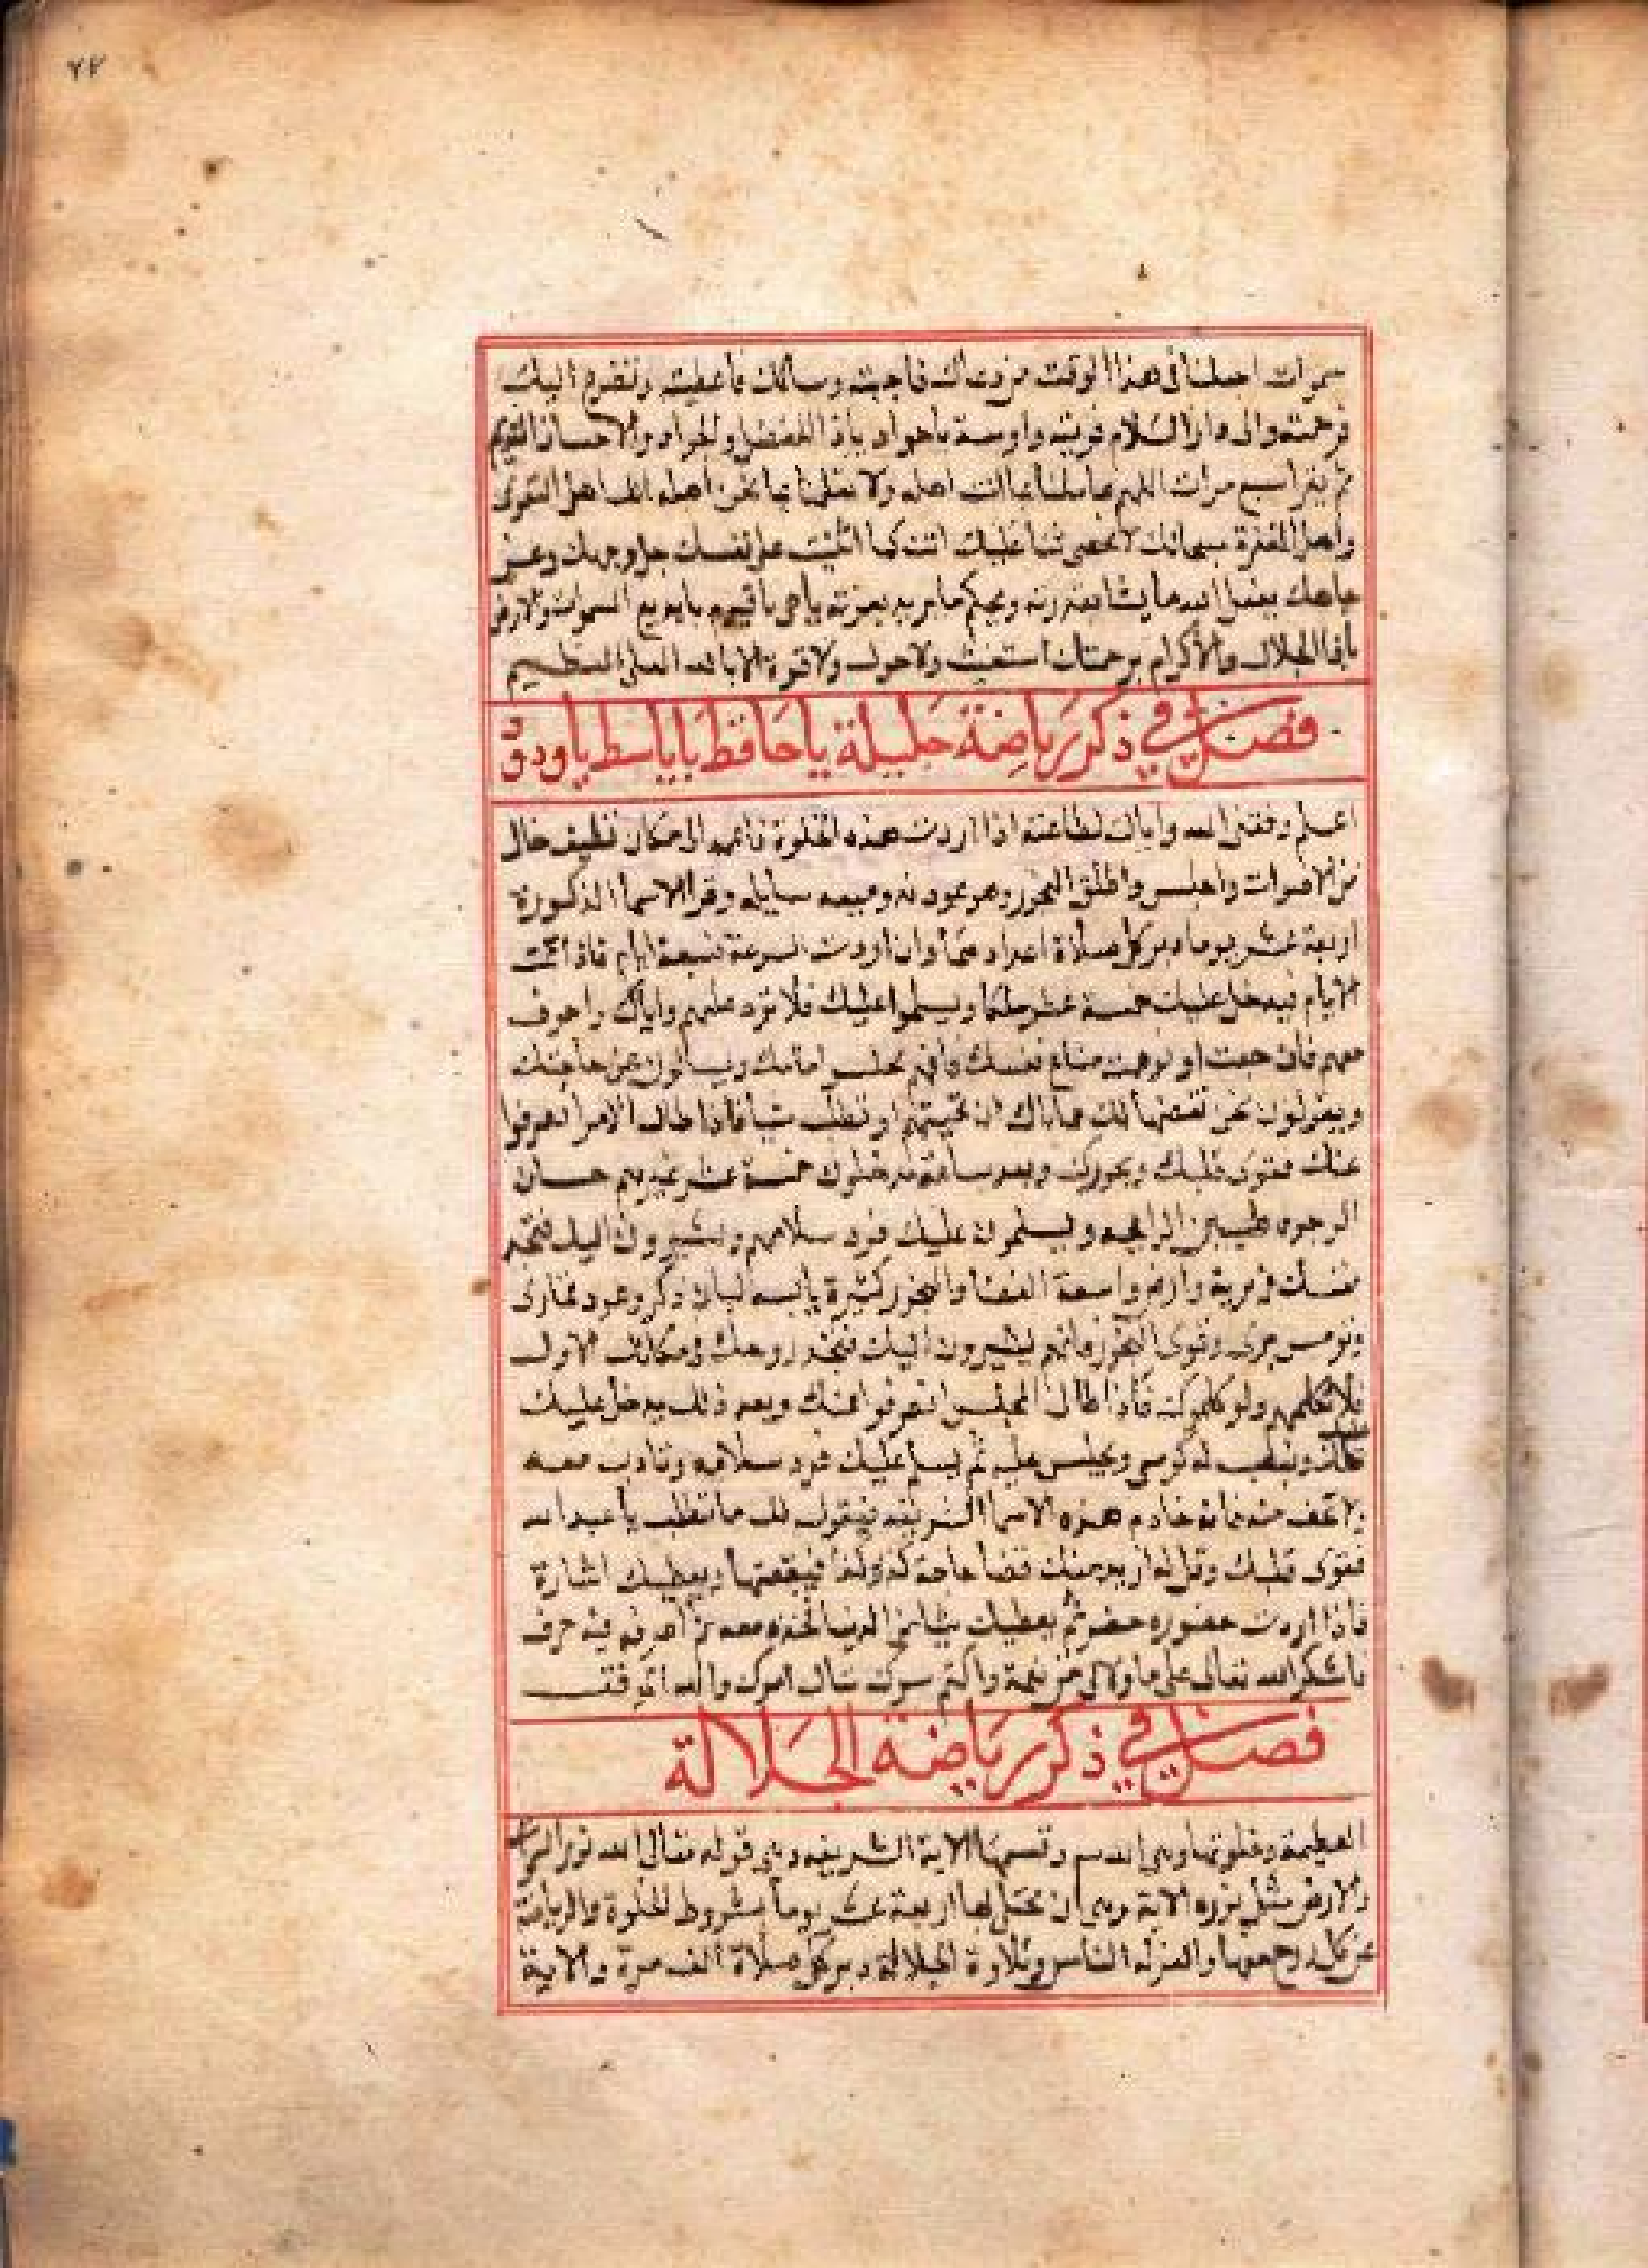 ٧٢
مرات اجعلنا في هذا الوقت من دعاك فاجبته وسالك فاعطيته وتضرع اليك
فرحمته والى دار السلام ياجواد ياذا الفضل والجود والاحسان
ثم يقرا سبع مرات اللهم عاملنا بما انت اهله ولا بما نحن اهله انك اهل التقوى
واهل المغفرة سبحانك لا نحصى ثنا عليك انت كما اثنيت على نفسك جل وجهك وعز
جاهك يفعل الله ما يشا بقدرته ويحكم ما يريد بعزته ياحى ياقيوم يابديع السموات والارض
ياذا الجلال والاكرام برحمتك استغيث ولا حول ولا قوة الا بالله العلى العظيم
فصل في ذكر رياضة جليلة ياحافظ ياباسط ياودود
اعلم وفقنى الله واياك لطاعته اذا اردت هذه الخلوة فاعمد الى مكان نظيف خال
من الاصوات واجلس واطلق البخور وهو عود ند وميعه سايله وقرا الاسما المذكورة
اربعة عشر يوما دبر كل صلاة وان اردت السرعة سبعة ايام فاذا تمت
الايام فيدخل عليك خمسة عشر ملكا ويسلموا عليك فلا ترد عليهم واياك والخوف
معهم فان خفت او نفسك يجلس امامك ويسالون عن حاجتك
ويقولون نحن نقضيها لك فاياك ان او تطلب شيا فاذا طال الامر انصرفوا
عنك فقوى قلبك وبخورك وبعد ساعة يدخلون خمسة عشر غيرهم حسان
الوجوه طيبين الرايحه ويسلمون عليك فرد سلامهم ويشيرون اليك فتجد
نفسك في برية وارض واسعة الفضا والبخور كثيرة لبان ذكر وعود قمارى
وقوى البخور فانهم يشيرون اليك فتجد روحك في مكانك الاول
فلا تكلمهم ولو كلموك فاذا طال المجلس انصرفوا عنك وبعد ذلك يدخل عليك
ملك وينصب له كرسى ويجلس عليه ثم يسلم عليك فرد سلامه وتادب معه
ولا تخف منه فانه خادم هذه الاسما الشريفه فيقول لك ما تطلب ياعبد الله
فقوى قلبك وقل له اريد منك قضا حاجة كذا وكذا فيقضيها ويعطيك اشارة
فاذا اردت حضوره حضر ثم يعطيك شيا من الدنيا فخذه منه ثم اصرفه
فاشكر الله تعالى على ما اولاك من نعمة واكتم سرك تنال امرك والله الموفق
فصل في ذكر رياضة الجلالة
العظيمة وخلوتها وهي الله وقسمها الاية الشريفه وهي قوله تعالى الله نور السموات
والارض مثل نوره الاية وهي ان تختلى لها اربعة عشر يوما بشروط الخلوة والرياضة
عن كل ذى روح والعزلة الناس وتلاوة الجلالة دبر كل صلاة الف مرة والاية